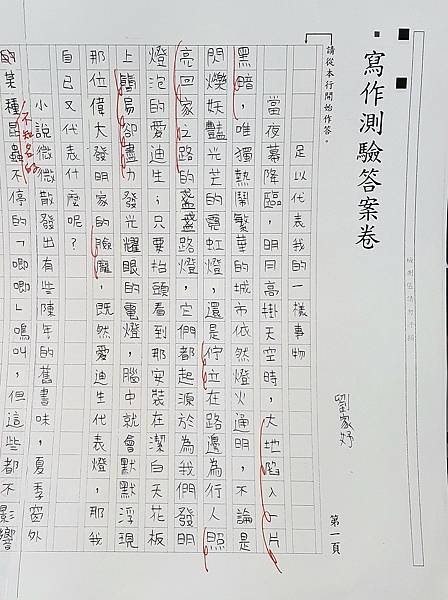 寫作測驗答案卷
請從本行開始作答。
劉家妤
第一頁
足以代表我的一樣事物
當夜幕降臨，明月高掛天空時，大地陷入一片
黑暗，唯獨熱鬧繁華的城市依然燈火通明，不論是
閃爍妖豔光芒的霓虹燈，還是佇立在路邊為行人照
亮回家之路的盞盞路燈，它們都起源於為我們發明
燈泡的愛迪生；只要抬頭看到那安裝在潔白天花板
上簡易卻盡力發光耀眼的電燈，腦中就會默默浮現
那位偉大發明家的臉龐，既然愛迪生代表燈，那我
自己又代表什麼呢？
小說微微散發出有些陳年的舊書味，夏季窗外
不知名的
的某種昆蟲不停的「唧唧」鳴叫，但這些都不影響